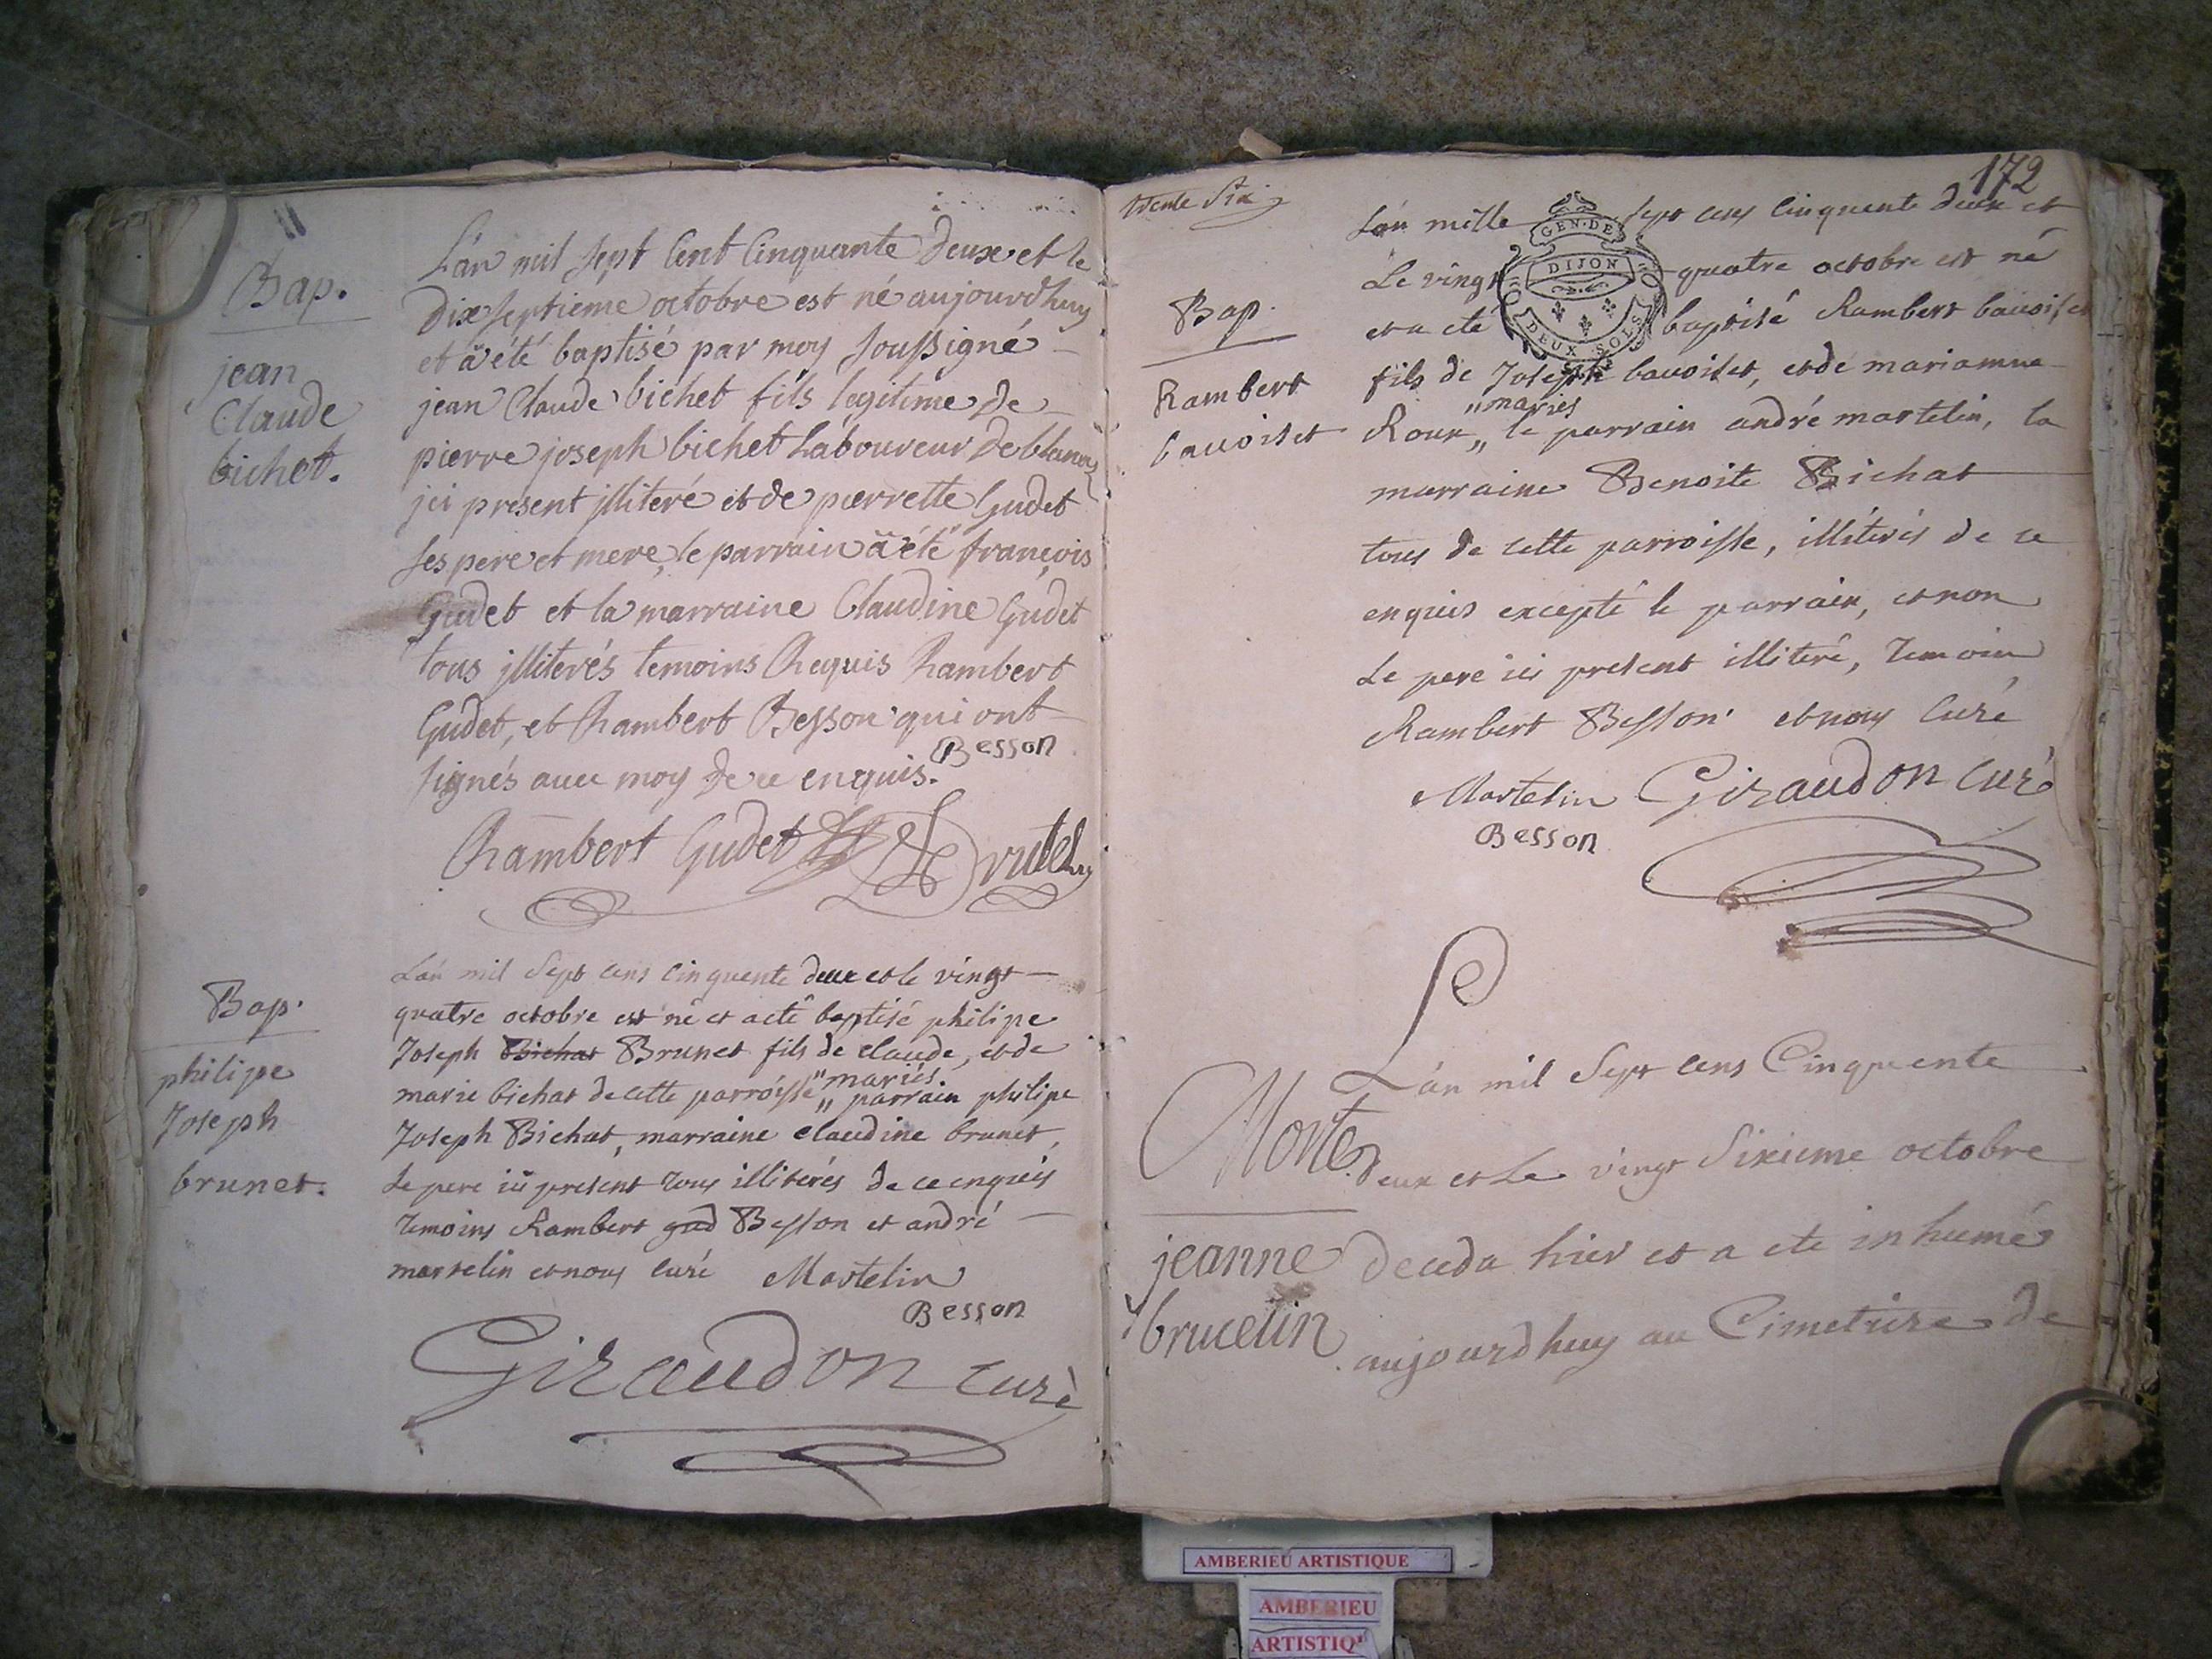 Bap.
jean
Claude
bichet.
L'an mil sept Cent Cinquante deux et le
dix septieme octobre est né aujourdhuy
et a été baptisé par moy soussigné
jean Claude bichet fils legitime de
pierre joseph bichet Laboureur de
jci present jlliteré et de pierrette Gudet
ses pere et mere, le parrain a été françois
Gudet et la marraine Claudine Gudet
tous jlliterés temoins Requis Rambert
Gudet, et Rambert Besson qui ont
signés avec moy de ce enquis.
Besson
Rambert Gudet
Bap.
philipe
Joseph
brunet.
L'an mil Sept cens cinquente deux et le vingt
quatre octobre est né et a eté baptisé philipe
Joseph Bichat Brunet fils de claude, et de
marie bichat de cette parroisse "mariés" parrain philipe
Joseph Bichat, marraine claudine brunet,
Le pere ici present tous illiterés de ce enquis
temoins Rambert gud Besson et andré
martelin et nous curé Martelin
Besson
Giraudon curè
172
trente Six
Bap.
Rambert
bauoiset
L'an mille sept cens cinquente deux et
Le vingt quatre octobre est né
et a eté baptisé Rambert bauoiset
fils de Joseph bauoiset, et de mariamne
Roux "mariés" le parrain andré martelin, la
marraine Benoite Bichat
tous de cette parroisse, illiterés de ce
enquis excepté le parrain, et non
Le pere ici present illiteré, temoin
Rambert Besson et nous Curé
Martelin Giraudon curé
Besson
GEN. DE
DIJON
DEUX SOLS
Morte
jeanne
brucelin
L'an mil Sept cens Cinquente
deux et Le vingt Sixieme octobre
deceda hier et a ete inhumé
aujourdhuy au Cimetiere de
AMBERIEU ARTISTIQUE
AMBERIEU
ARTISTIQ